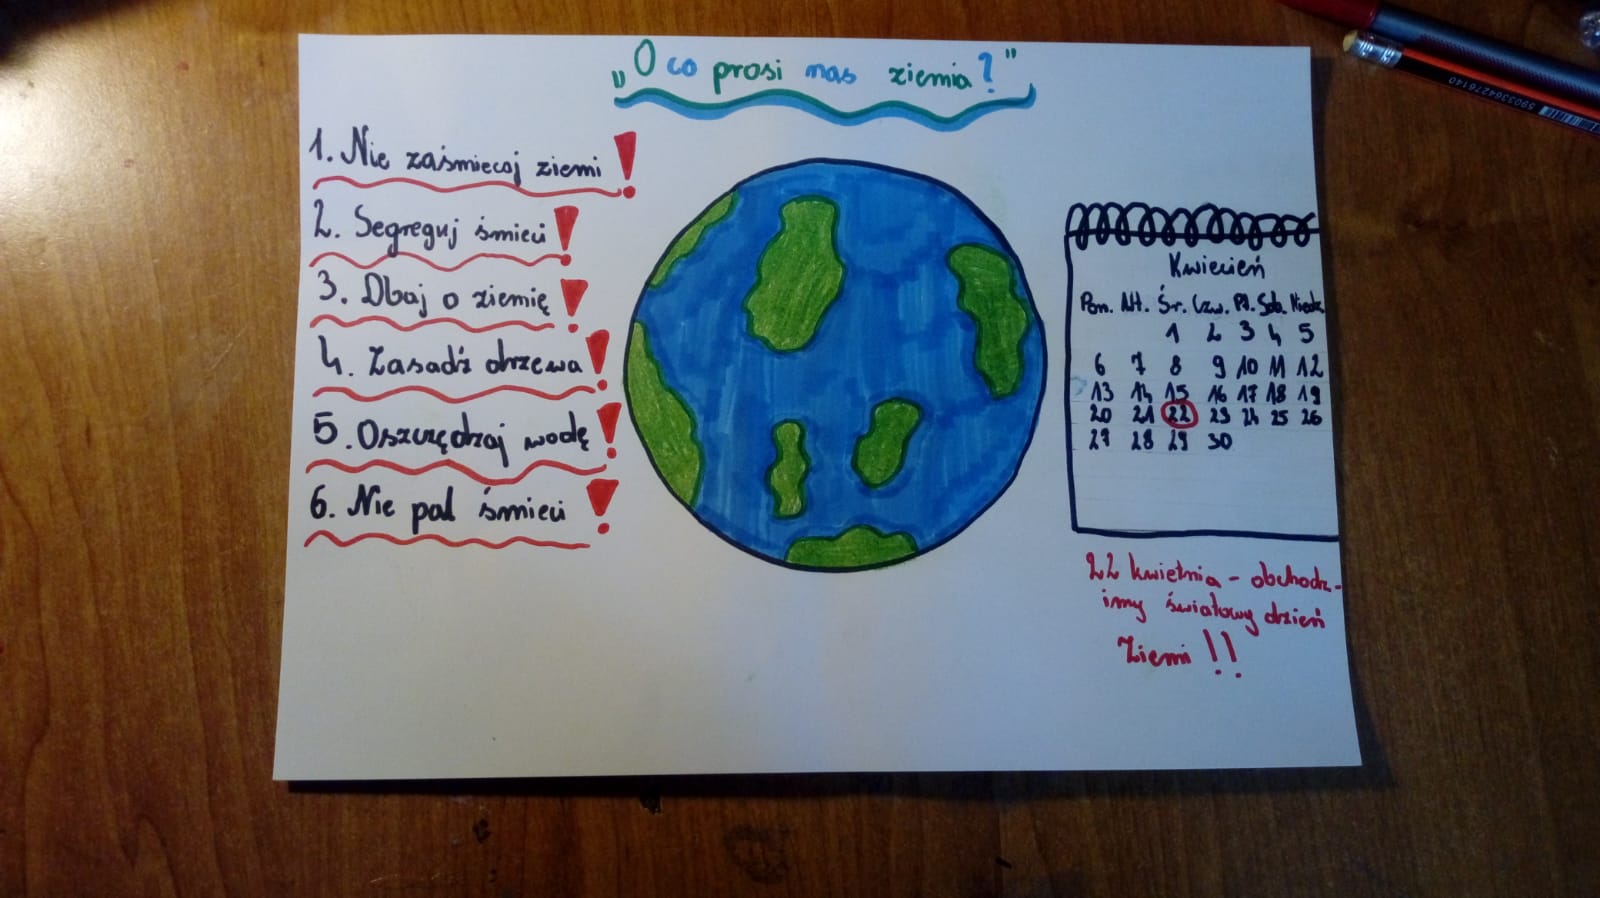 „O co prosi nas ziemia?"
1. Nie zaśmiecaj ziemi!
2. Segreguj śmieci!
3. Dbaj o ziemię!
4. Zasadź drzewa!
5. Oszczędzaj wodę!
6. Nie pal śmieci!
Kwiecień
Pon. Wt. Śr. Czw. Pt. Sob. Niedz.
1 2 3 4 5
6 7 8 9 10 11 12
13 14 15 16 17 18 19
20 21 22 23 24 25 26
27 28 29 30
22 kwietnia - obchodz-
imy światowy dzień
Ziemi!!
5903364276140